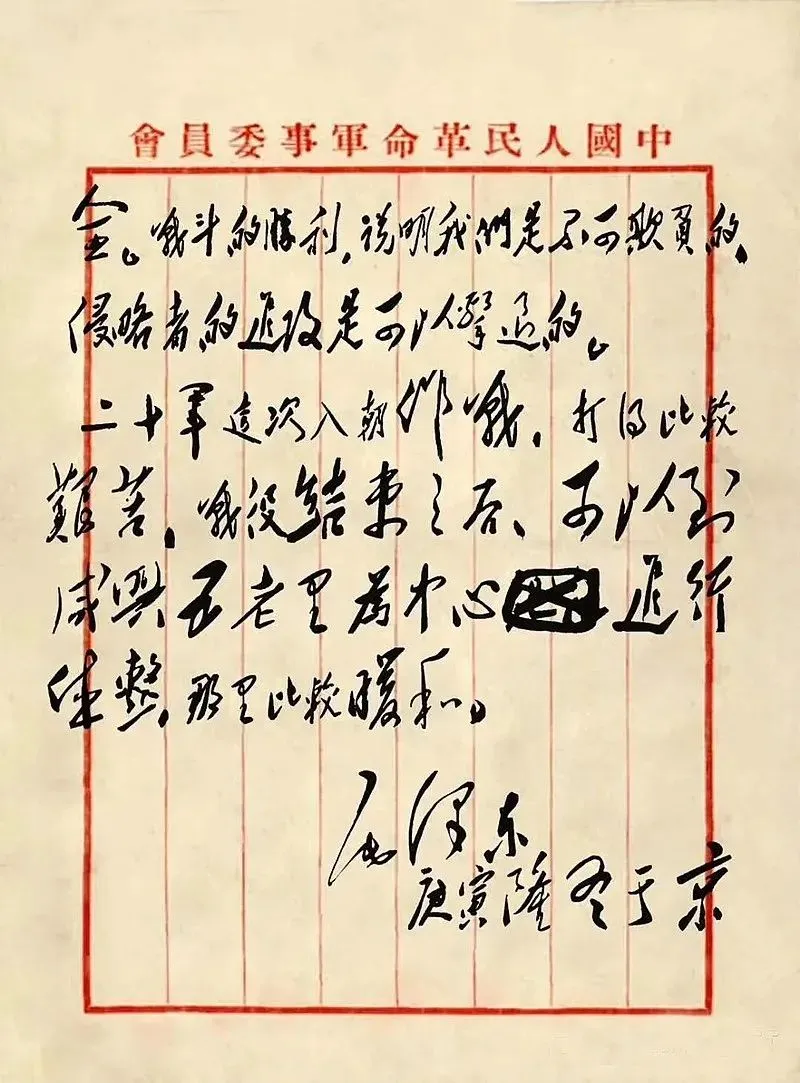 中國人民革命軍事委員會
全。戰斗的勝利,説明我們是不可欺負的,
侵略者的進攻是可以擊退的。
二十軍這次入朝作戰,打得比較
艱苦,戰役結束之后、可以到
咸興五老里為中心進行
休整,那里比較暖和。
毛澤东
庚寅隆冬于京